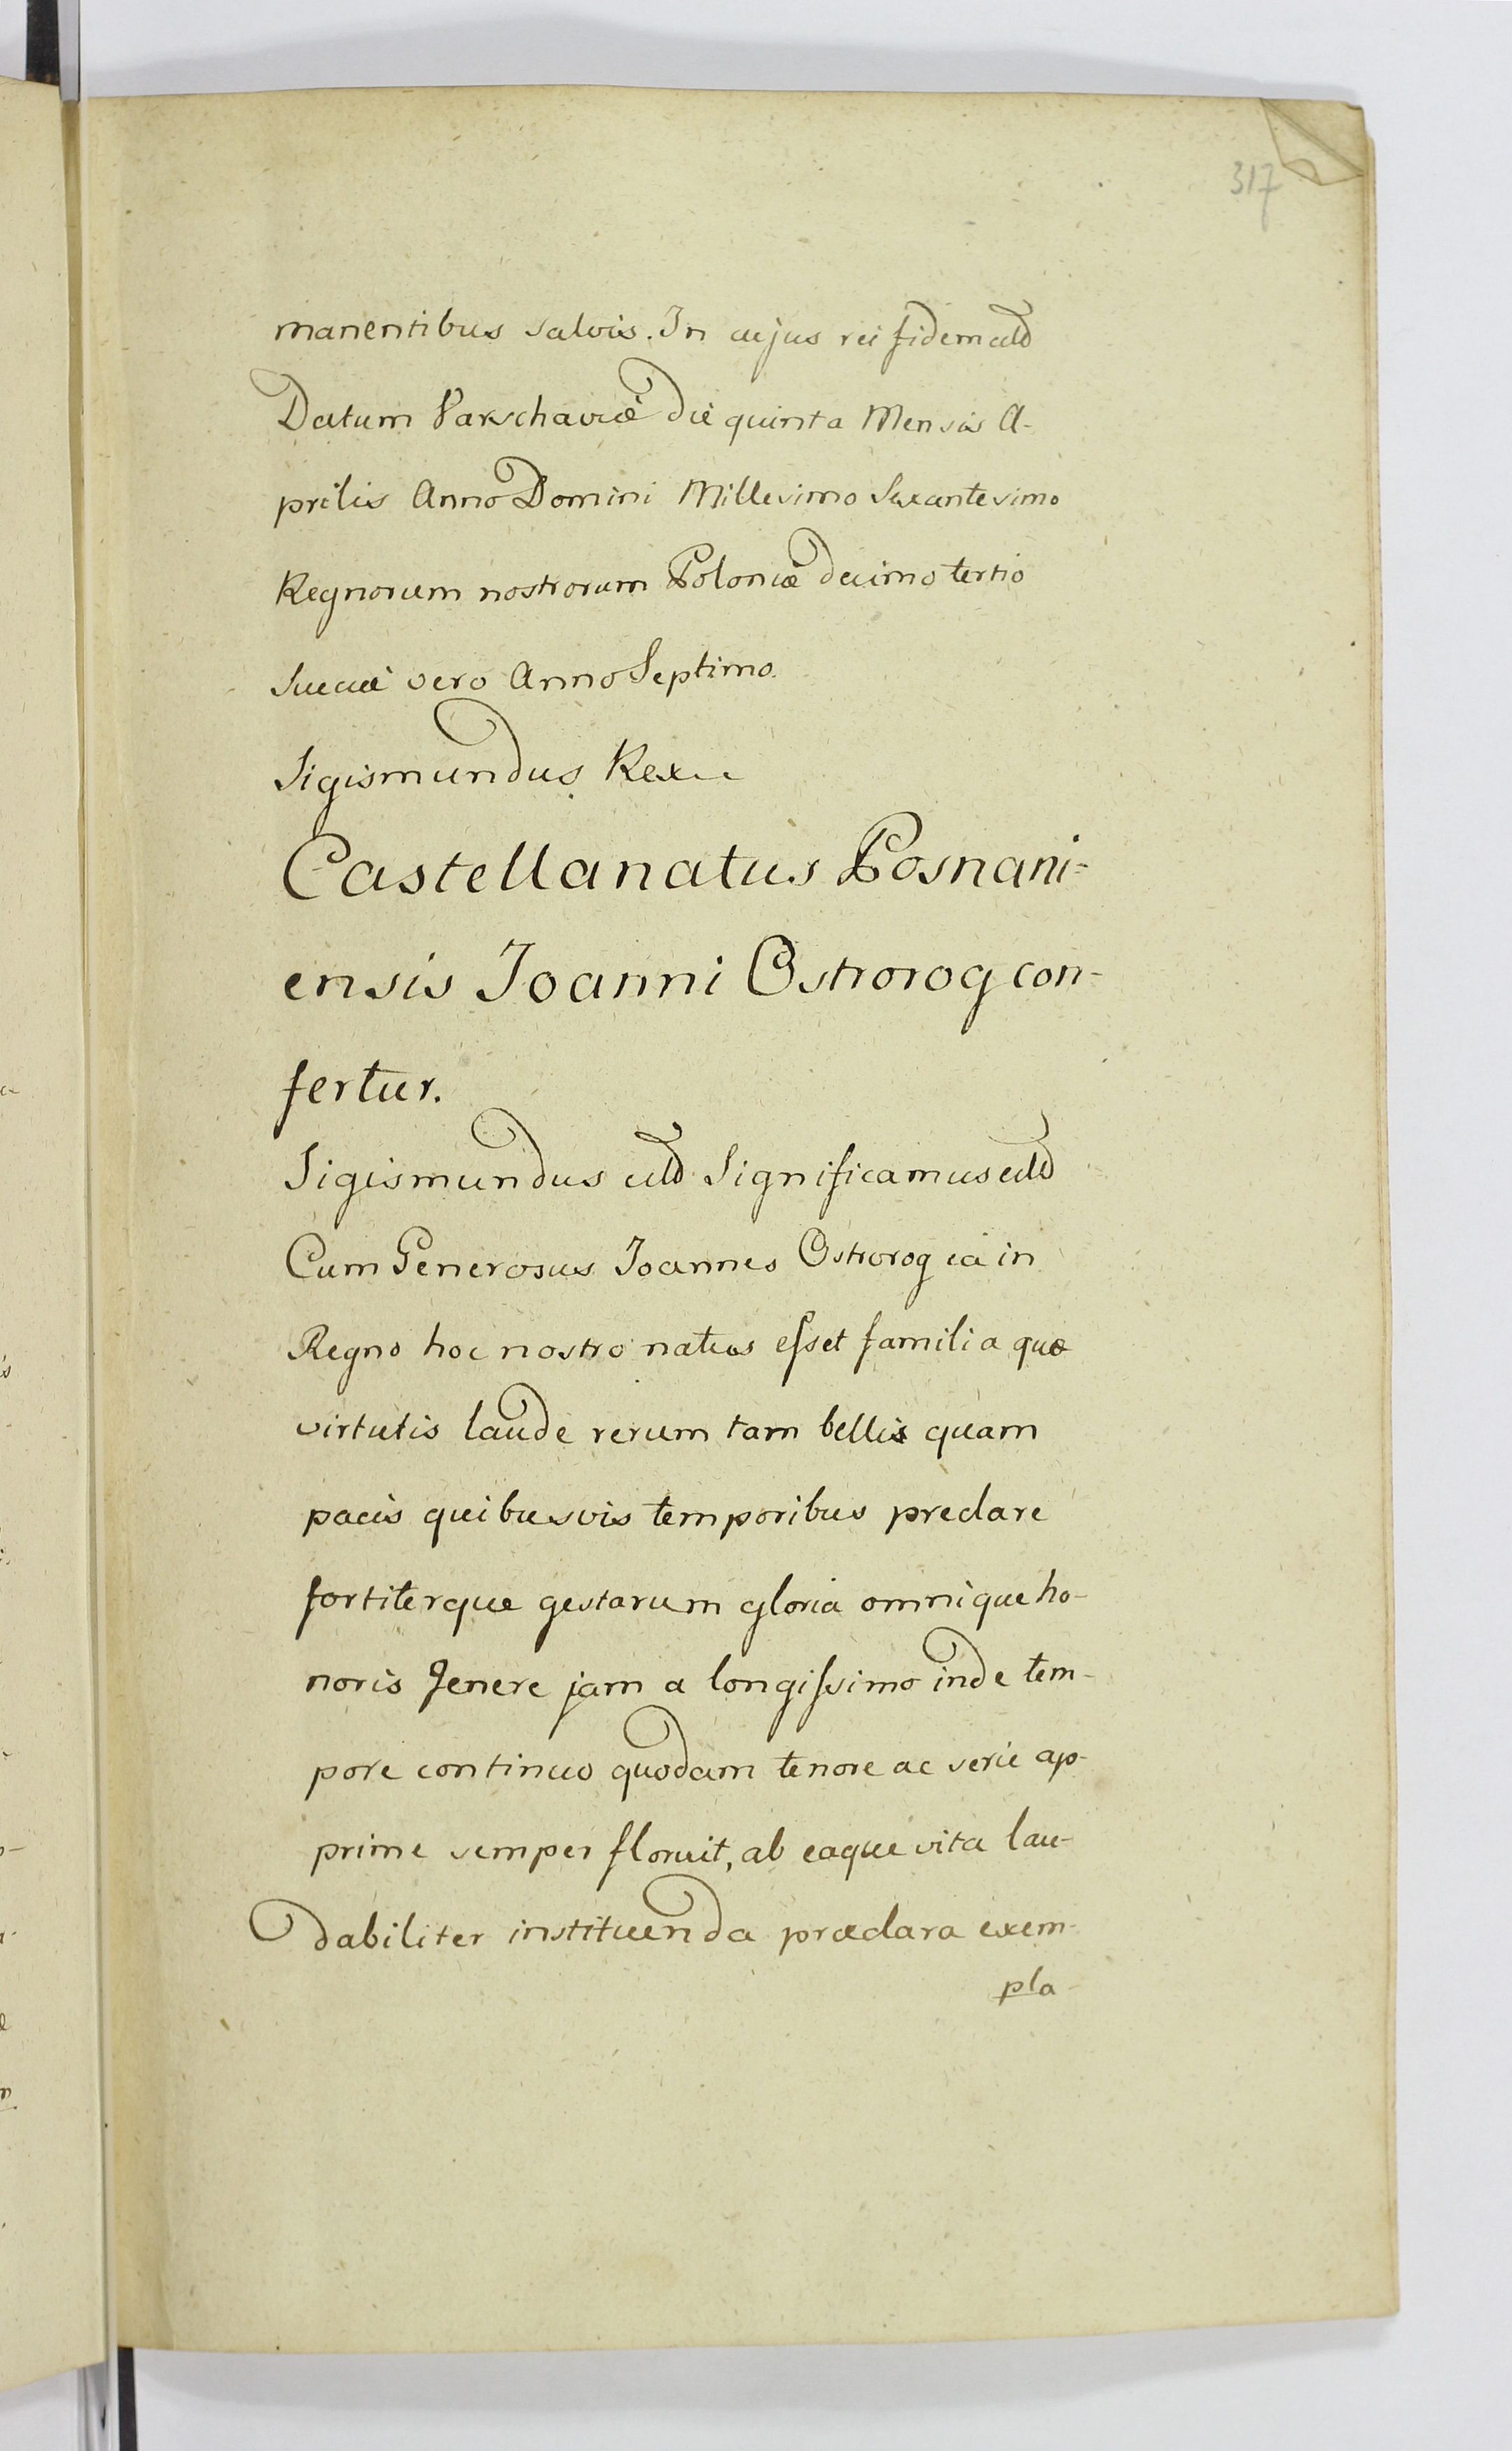 317
manentibus salvis. In cujus rei fidem etc
Datum Varschaviæ die quinta Mensis A-
prilis Anno Domini Millesimo Sexantesimo
Regnorum nostrorum Poloniæ decimo tertio
Sueciæ vero Anno Septimo.
Sigismundus Rex
Castellanatus Posnani-
ensis Joanni Ostrorog con-
fertur.
Sigismundus etc Significamus etc
Cum Generosus Joannes Ostrorog ea in
Regno hoc nostro natus esset familia quæ
virtutis laude rerum tam bellis quam
pacis quibusvis temporibus preclare
fortiterque gestarum gloria omnique ho-
noris genere jam a longissimo inde tem-
pore continuo quodam tenore ac serie ap-
prime semper floruit, ab eaque vita lau-
dabiliter instituenda præclara exem-
pla-